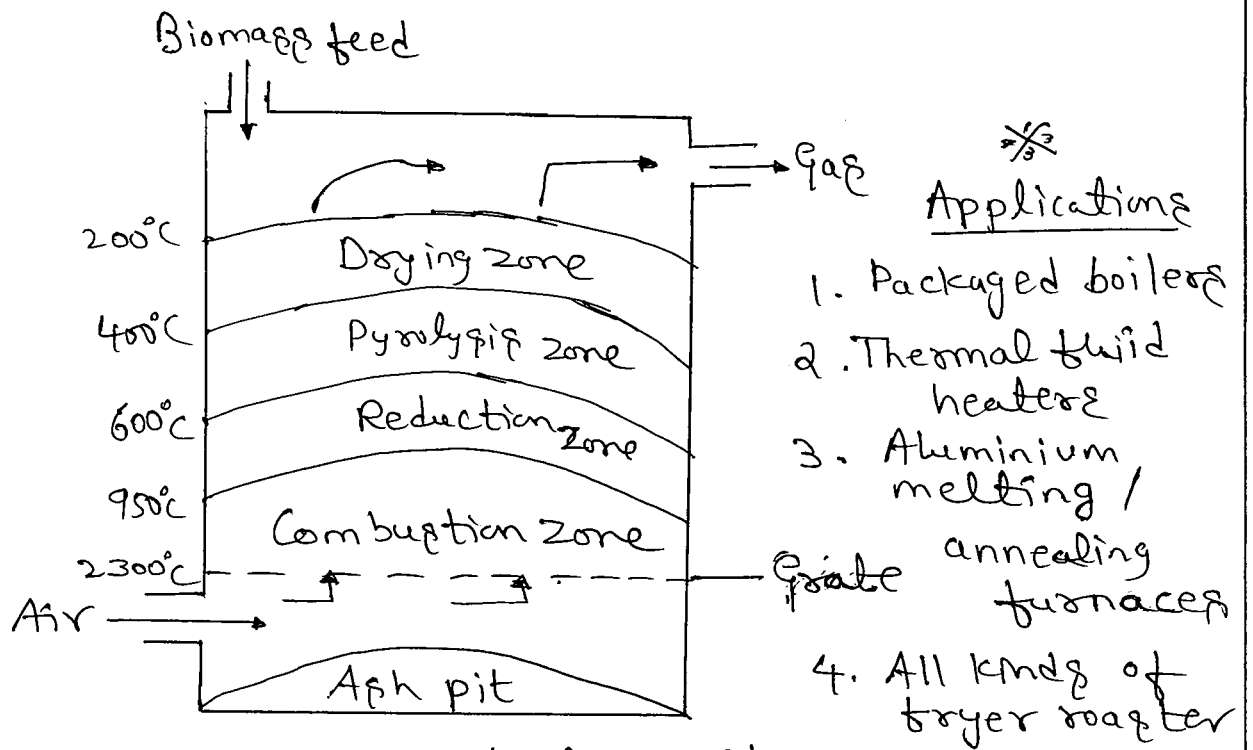 Biomass feed
Gas
200°C
Drying zone
400°C
Pyrolysis zone
600°C
Reduction zone
950°C
Combustion zone
2300°C
Grate
Air
Ash pit
Applications
1. Packaged boilers
2. Thermal fluid
heaters
3. Aluminium
melting /
annealing
furnaces
4. All kinds of
fryer roaster